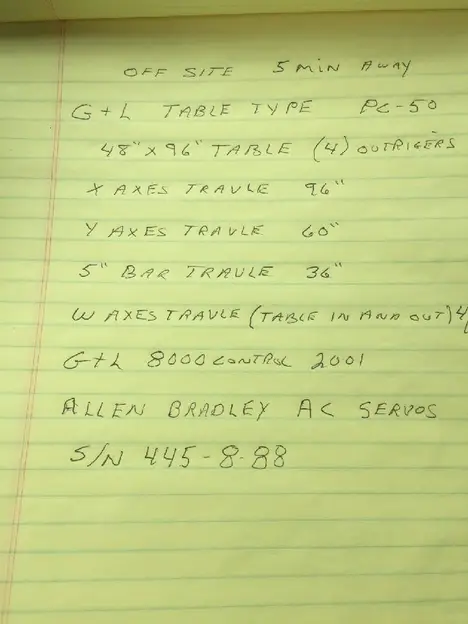 OFF SITE 5 MIN AWAY
G+L TABLE TYPE PC-50
48" X 96" TABLE (4) OUTRIGERS
X AXES TRAVLE 96"
Y AXES TRAVLE 60"
5" BAR TRAVLE 36"
W AXES TRAVLE (TABLE IN AND OUT) 4
G+L 8000 CONTROL 2001
ALLEN BRADLEY AC SERVOS
S/N 445-8-88